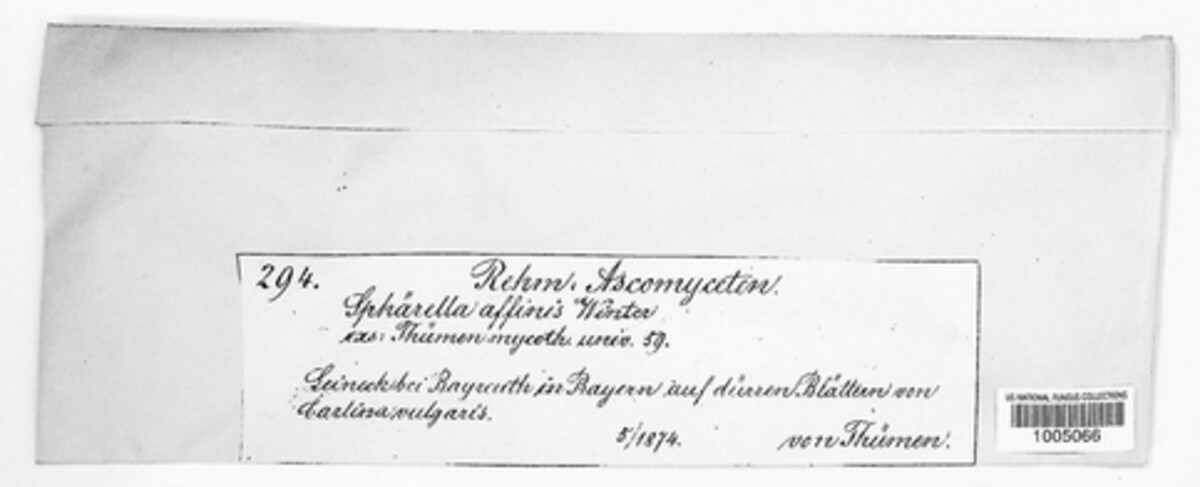 294. Rehm: Ascomyceten.
Sphärella affinis Winter
exs: Thümen mycoth. univ. 59.
Leineck bei Bayreuth in Bayern auf dürren Blättern von
Carlina vulgaris.
5/1874. von Thümen.
US NATIONAL FUNGUS COLLECTIONS
1005066